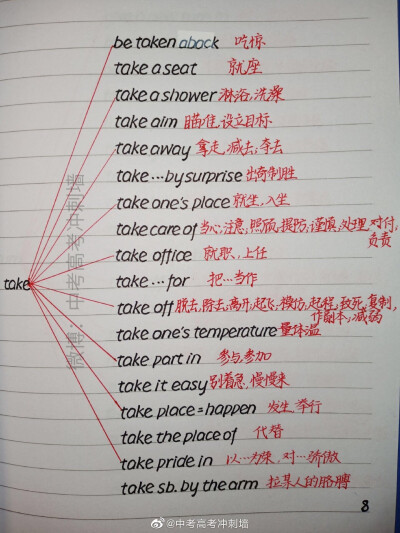 be taken aback 吃惊
take a seat 就座
take a shower 淋浴,洗澡
take aim 瞄准,设立目标
take away 拿走,减去,夺去
take…by surprise 出奇制胜
take one's place 就坐,入坐
take care of 当心,注意,照顾,提防,谨慎,处理,对付,
负责
take office 就职,上任
take…for 把…当作
take off 脱去,除去,离开,起飞,模仿,起程,致死,复制,
作副本,减弱
take one's temperature 量体温
take part in 参与,参加
take it easy 别着急,慢慢来
take place = happen 发生,举行
take the place of 代替
take pride in 以…为荣,对…骄傲
take sb. by the arm 拉某人的胳膊
take
微博:中考高考冲刺墙
8
@中考高考冲刺墙